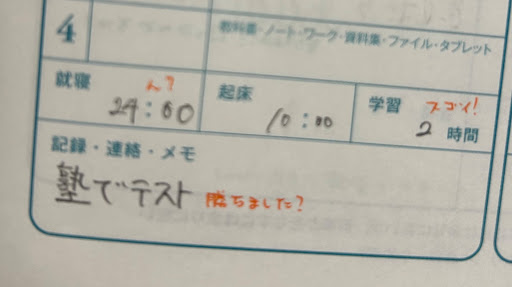 4
教科書・ノート・ワーク・資料集・ファイル・タブレット
就寝 ん?
24:60
起床
10:00
学習 スゴイ!
2 時間
記録・連絡・メモ
塾でテスト 勝ちました?